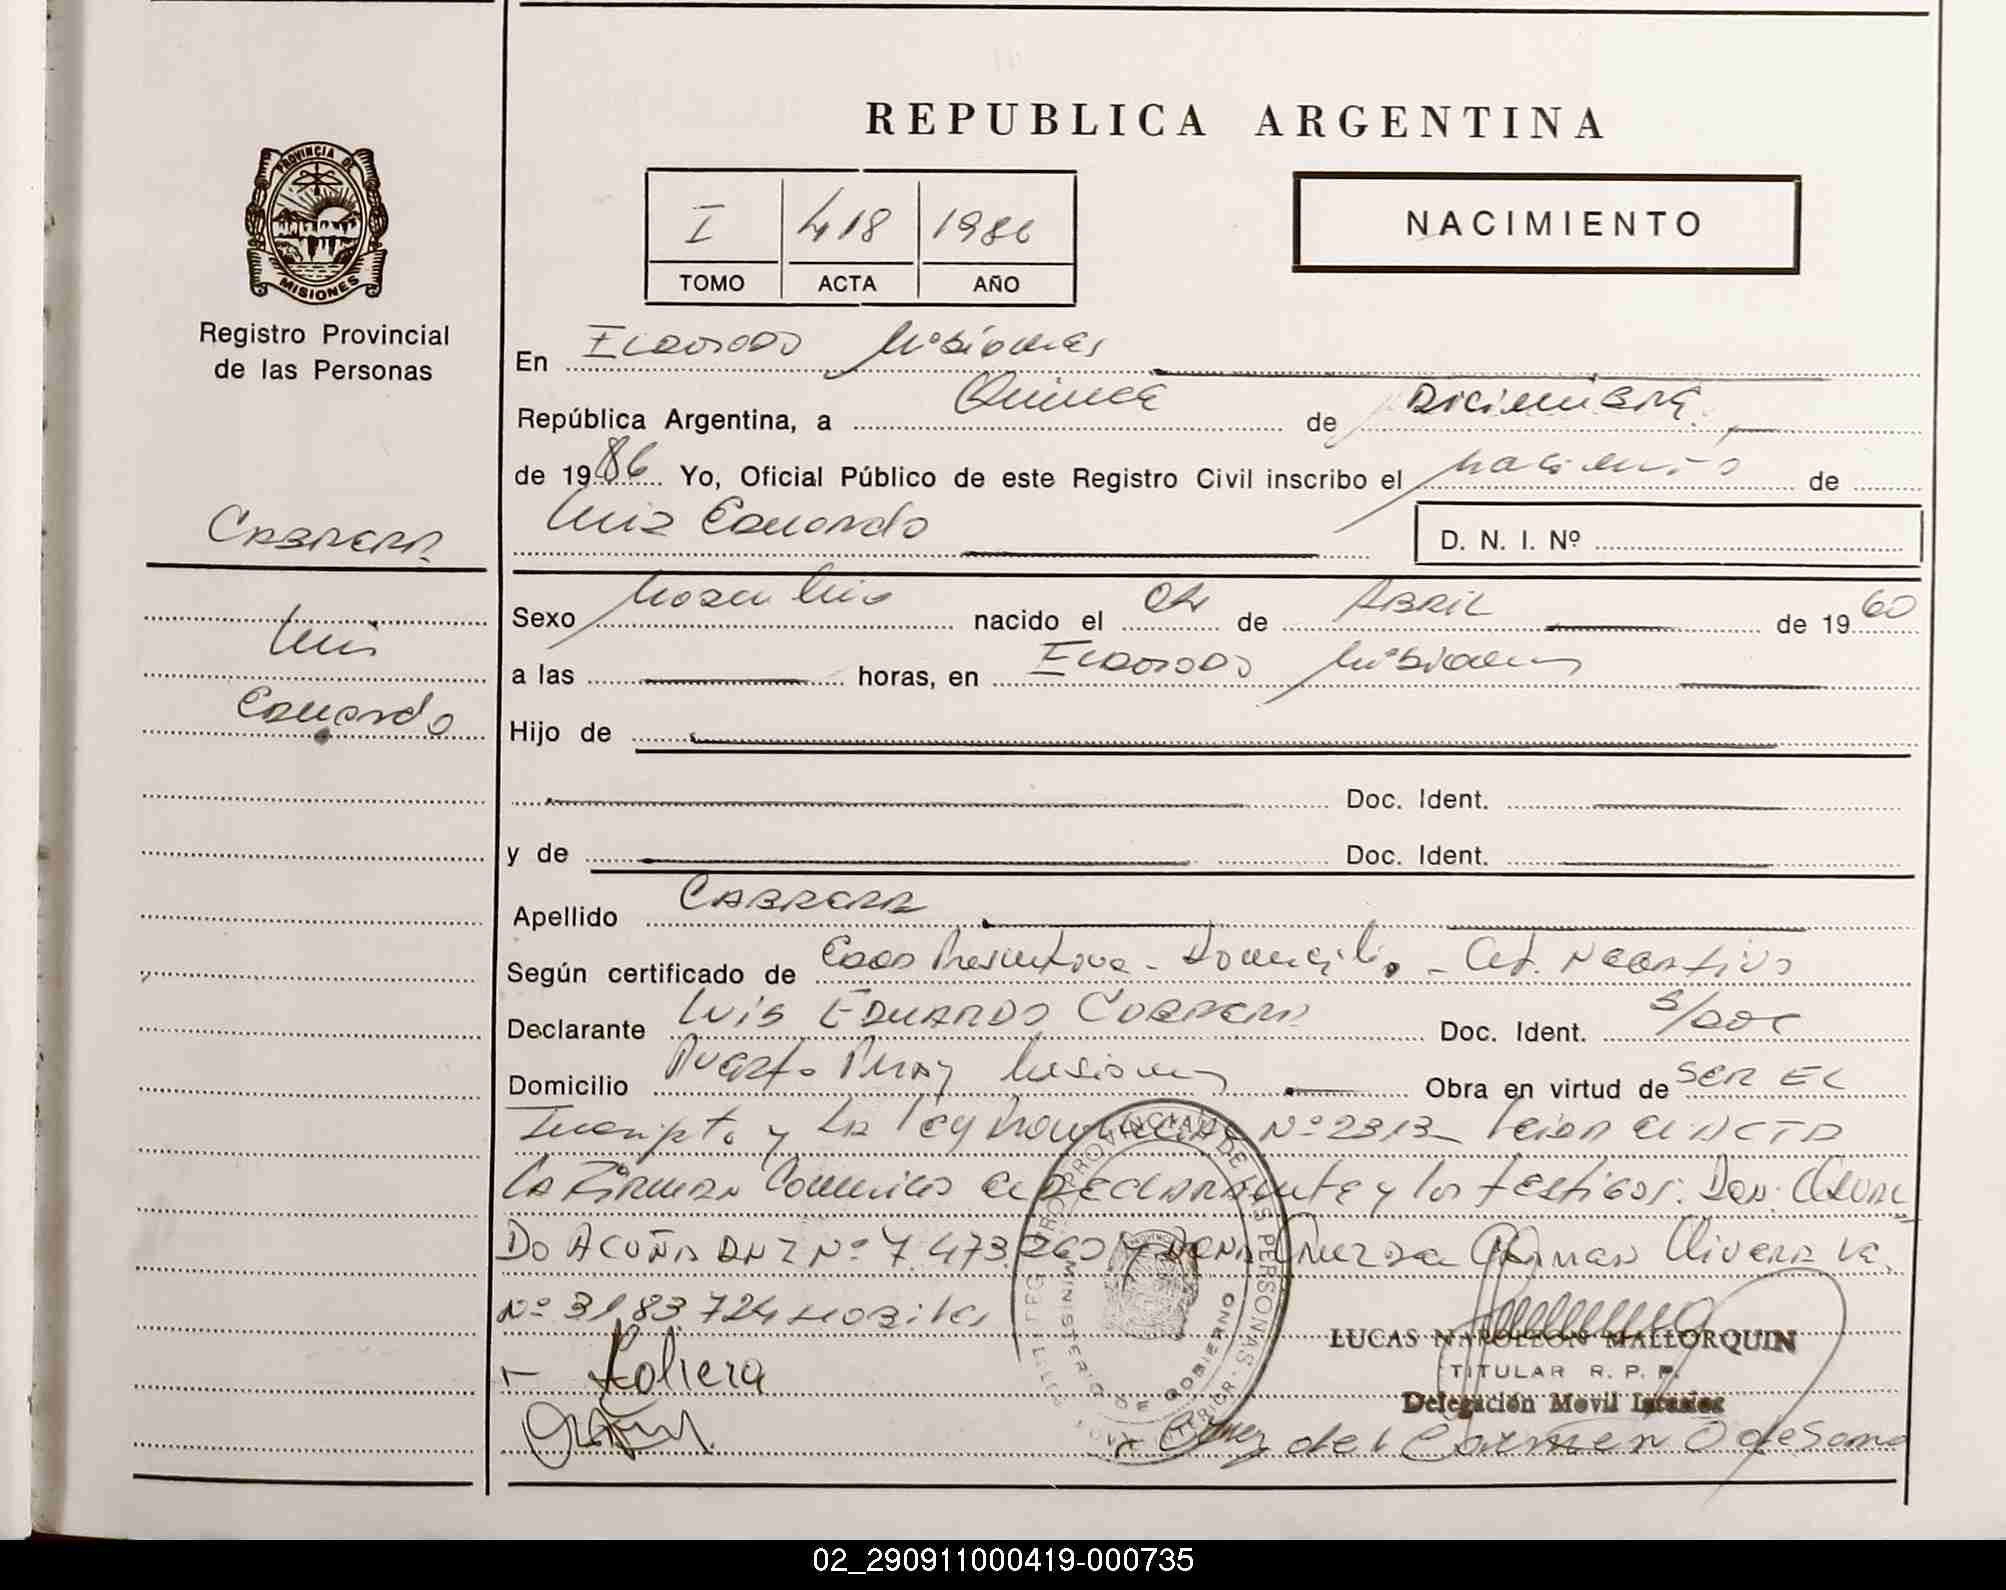 REPUBLICA ARGENTINA
PROVINCIA DE
MISIONES
Registro Provincial
de las Personas
I 418 1986
TOMO ACTA AÑO
NACIMIENTO
En Eldorado Misiones
República Argentina, a Quince de Diciembre
de 1986 Yo, Oficial Público de este Registro Civil inscribo el nacimiento de
Luis Eduardo
D. N. I. Nº
CABRERA
Luis
Eduardo
Sexo Masculino nacido el 04 de ABRIL de 1960
a las horas, en Eldorado Misiones
Hijo de
Doc. Ident.
y de Doc. Ident.
Apellido CABRERA
Según certificado de Edad Presuntiva - Domicilio - Cet. Negativo
Declarante LUIS EDUARDO CABRERA Doc. Ident. S/DOC
Domicilio Puerto Piray Misiones Obra en virtud de SER EL
Inscripto y La Ley Nº 2313 - Leida el ACTA
La Firman Conmigo el DECLARANTE y los testigos: Don: Osval
DO ACUÑA DNI Nº 7.473. y Olivera
Nº 3183.724
LUCAS NAPOLEON MALLORQUIN
TITULAR R. P. P.
Delegación Movil
del Carmen O de
REGISTRO PROVINCIAL DE LAS PERSONAS
MINISTERIO DE GOBIERNO
02_290911000419-000735